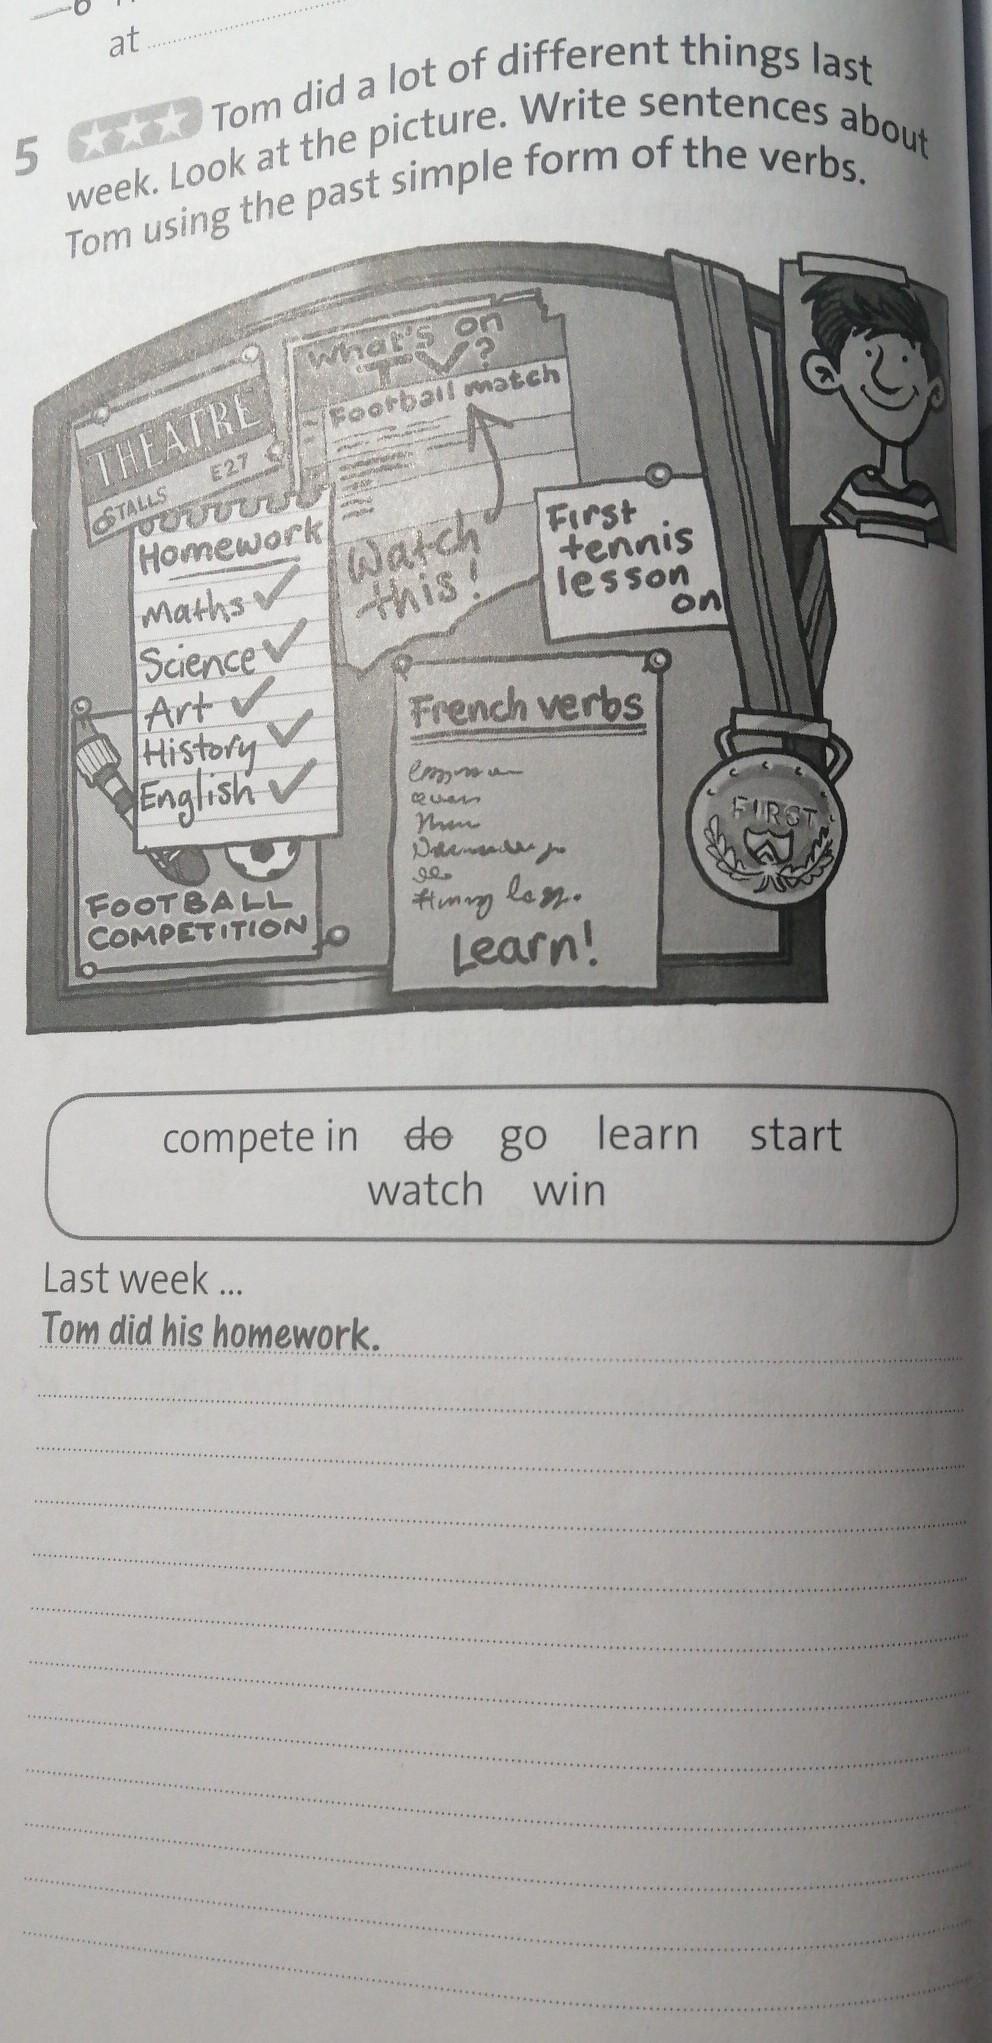 at
5 Tom did a lot of different things last
week. Look at the picture. Write sentences about
Tom using the past simple form of the verbs.
THEATRE
STALLS E27
What's on
TV?
Football match
Watch
this!
First
tennis
lesson
on
Homework
Maths
Science
Art
History
English
French verbs
Learn!
FIRST
FOOTBALL
COMPETITION
compete in do go learn start
watch win
Last week ...
Tom did his homework.